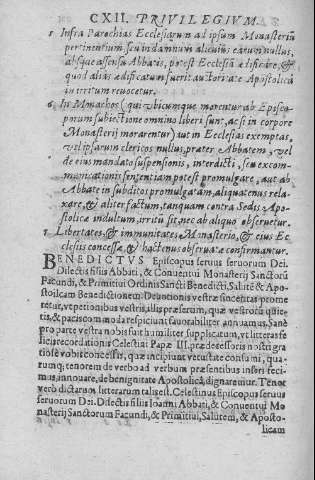 CXII. PRIVILEGIVM.
5 Infra Parochias Ecclesiarum ad ipsum Monasteriũ
pertinentium, seu in damnum alicuius earum nullus,
absque assensu Abbatis, potest Ecclesiã ædificare, &
quod alias ædificatum fuerit auctoritate Apostolica
in irritum reuocetur.
6 In Monachos (qui vbicumque morentur ab Episco-
porum subiectione omnino liberi sunt, ac si in corpore
Monasterij morarentur) aut in Ecclesias exemptas,
vel ipsarum clericos nullus, præter Abbatem, vel
de eius mandato suspensionis, interdicti, seu excom-
municationis sententiam potest promulgare, aut ab
Abbate in subditos promulgatam, aliquatenus rela-
xare, & aliter factum, tanquam contra Sedis Apo-
stolicæ indultum, irritũ sit, nec ab aliquo obseruetur.
7 Libertates, & immunitates Monasterio, & eius Ec
clesijs concessæ, & hactenus obseruatæ confirmantur.
BENEDICTVS Episcopus seruus seruorum Dei.
Dilectis filijs Abbati, & Conuentui Monasterij Sanctorũ
Facundi, & Primitiui Ordinis Sancti Benedicti, Salutẽ & Apo-
stolicam Benedictionem. Deuotionis vestræ sinceritas prome
retur, vt petitionibus vestris, illis præsertim, quæ vestrorũ quie-
tis, & pacis commoda respiciunt fauorabiliter annuamus. Sanè
pro parte vestra nobis fuit humiliter supplicatum, vt litteras fe
licis recordationis Celestini Papæ III. prædecessoris nostri gra
tiosè vobis concessit, quæ incipiunt vetustate consumi, qua-
rumq; tenorem de verbo ad verbum præsentibus inseri feci-
mus, innouare, de benignitate Apostolica, dignaremur. Tenor
verò dictarum litterarum talis est. Celestinus Episcopus seruus
seruorum Dei. Dilectis filijs Ioanni Abbati, & Conuentui Mo
nasterij Sanctorum Facundi, & Primitiui, Salutem, & Aposto
licam